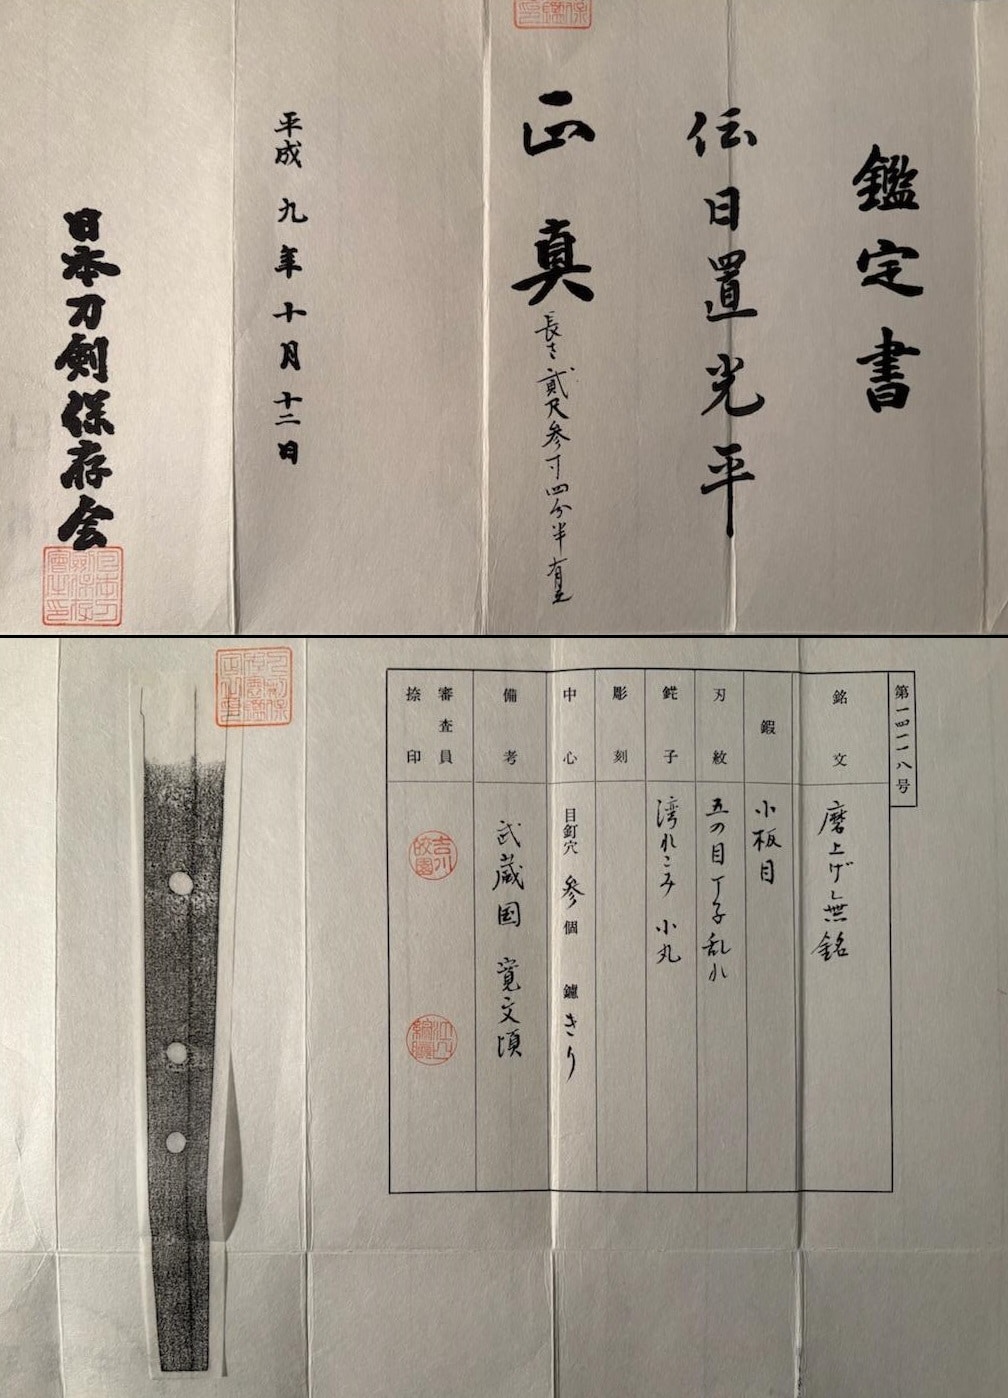 鑑定書
伝日置光平
正真
長さ貳尺参寸四分半有之
平成九年十月十二日
日本刀剣保存会
第一四一一八号
銘文
磨上げ無銘
鍜
小板目
刃紋
五の目丁子乱れ
鋩子
湾れこみ 小丸
彫刻
中心
目釘穴 参個 鑢きり
備考
武蔵国 寛文頃
審査員
捺印